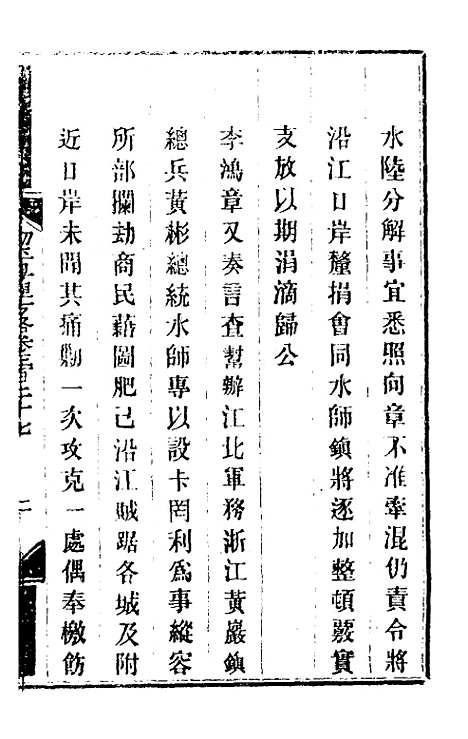 水陸分解事宜悉照向章不准牽混仍責令將
沿江口岸釐捐會同水師鎮將逐加整頓覈實
支放以期涓滴歸公
李鴻章又奏言查幫辦江北軍務浙江黃巖鎮
總兵黃彬總統水師專以設卡罔利爲事縱容
所部攔劫商民藉圖肥己沿江賊踞各城及附
近口岸未聞其痛勦一次攻克一處偶奉檄飭